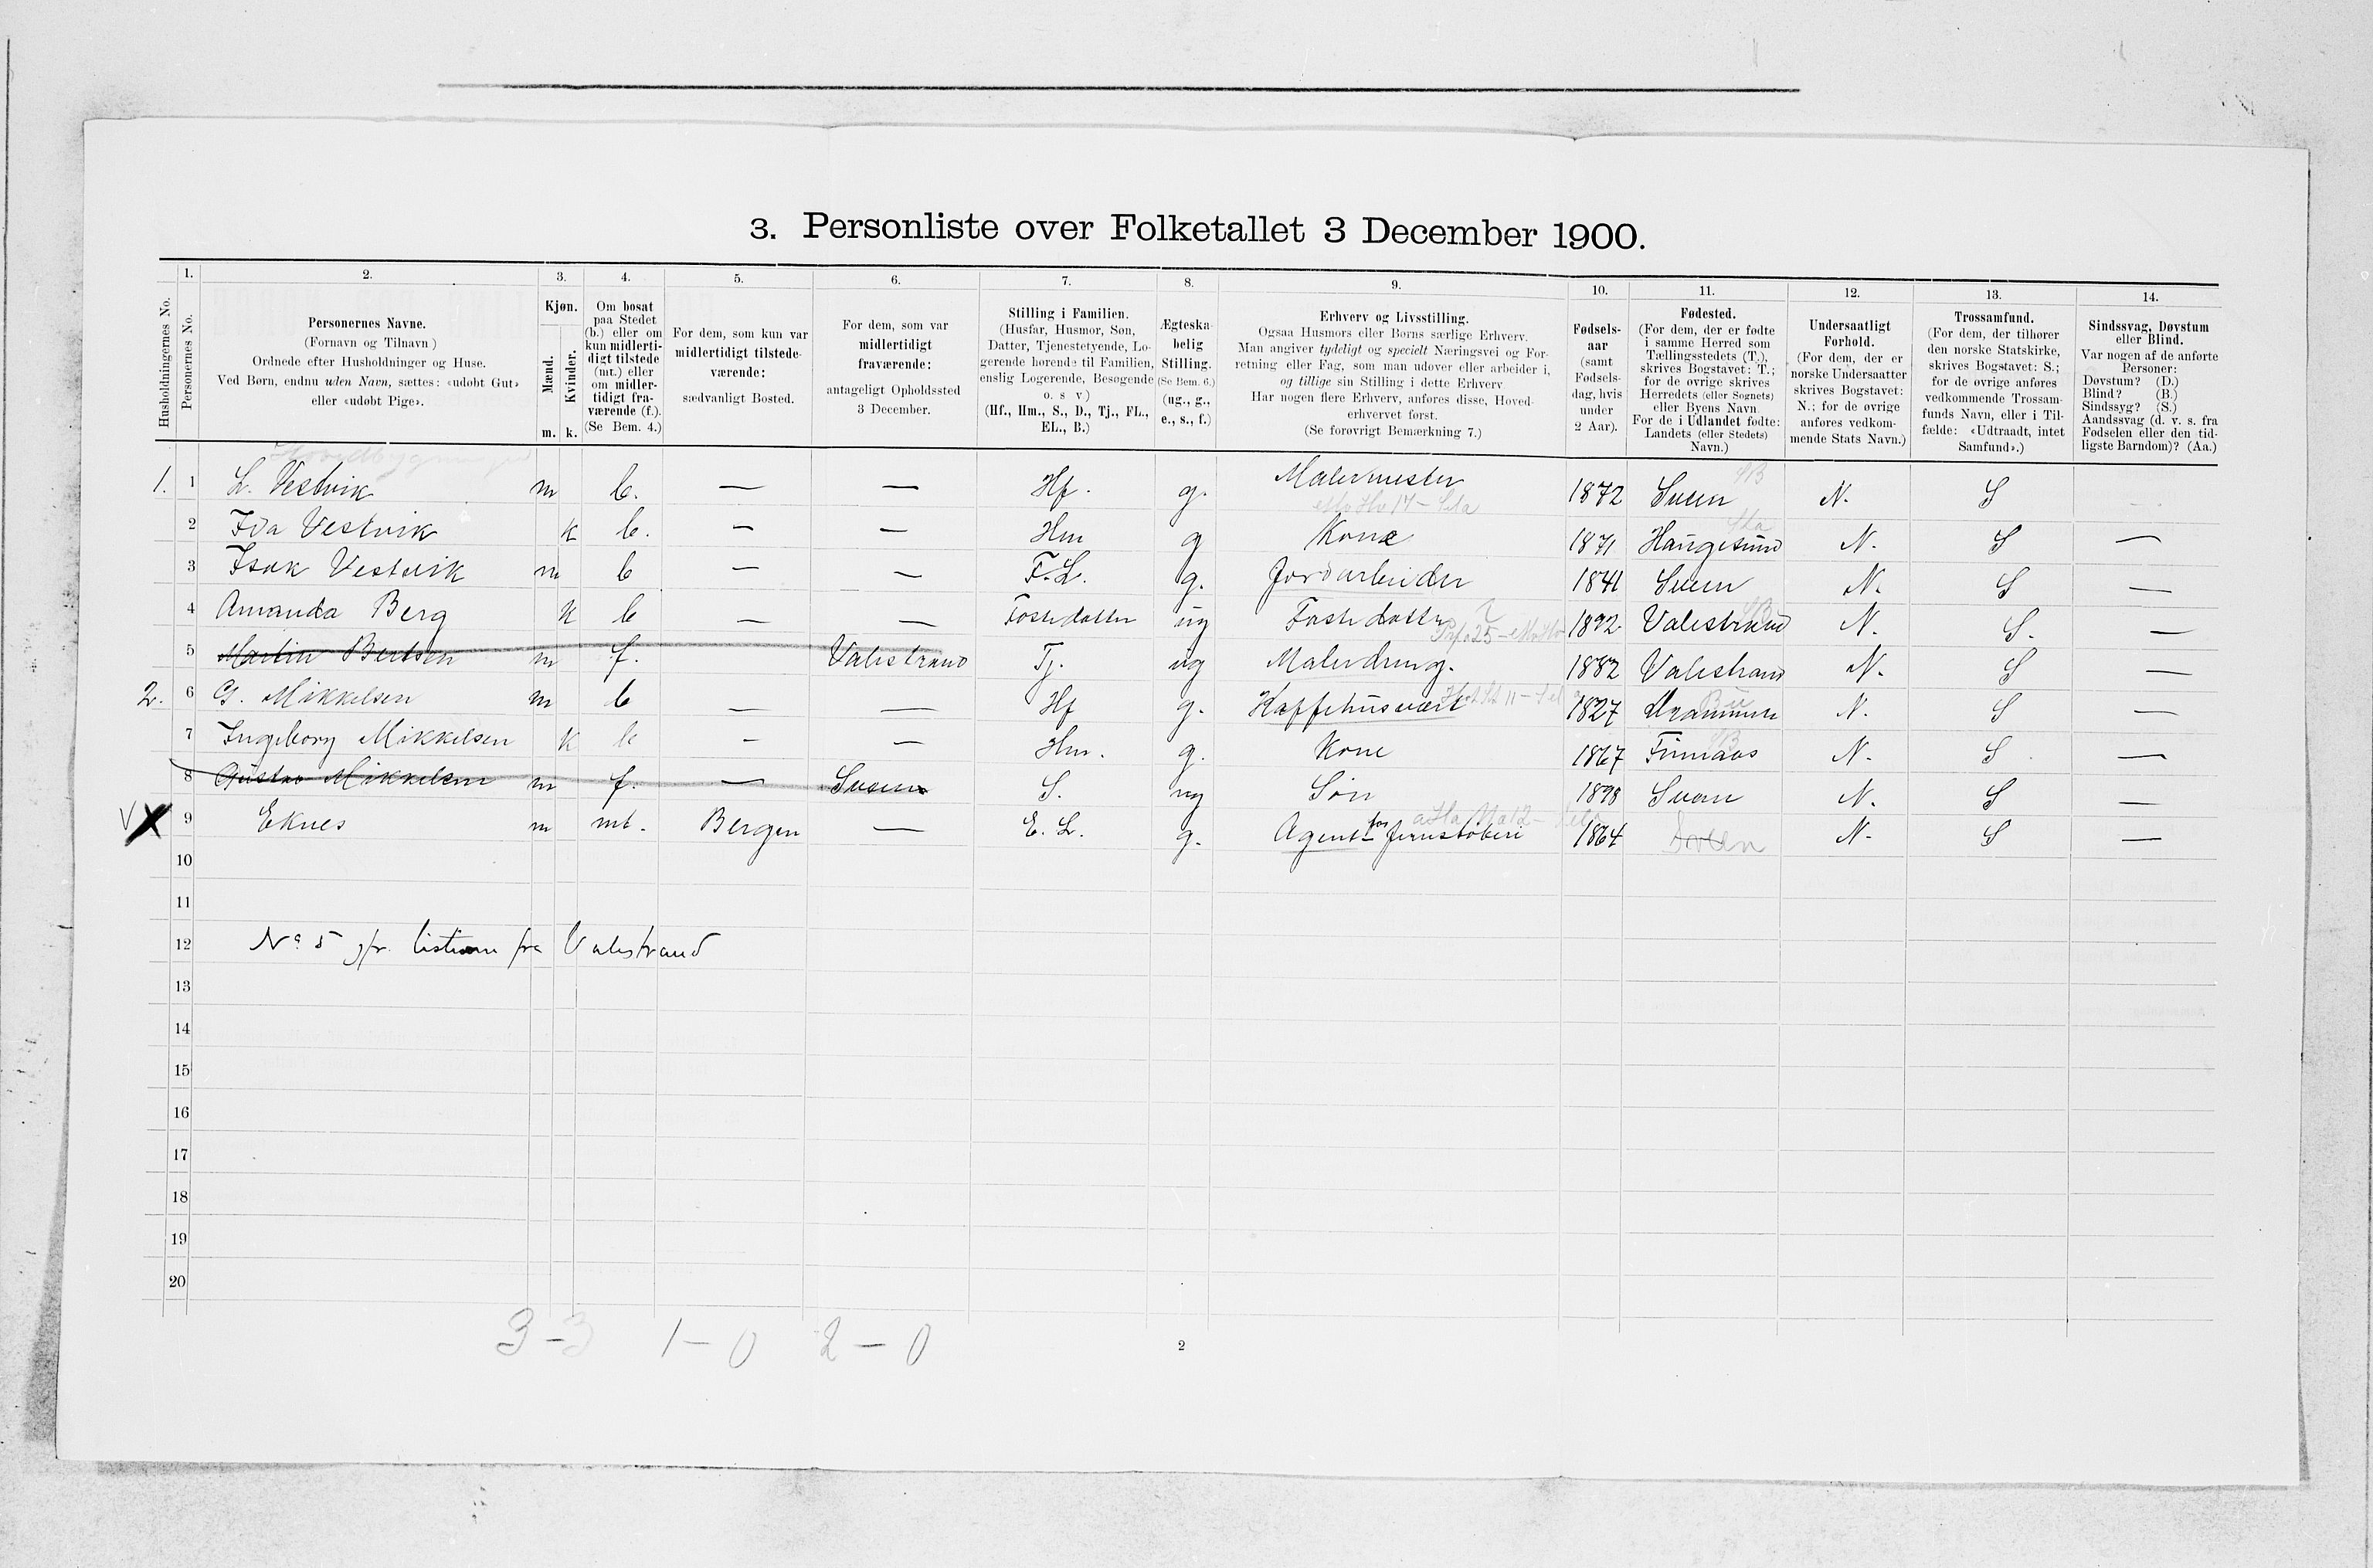 3. Personliste over Folketallet 3 December 1900.
1. 2. 3. 4. 5. 6. 7. 8. 9. 10. 11. 12. 13. 14.
Husholdningernes No.
Personernes No.
Personernes Navne.
(Fornavn og Tilnavn.)
Ordnede efter Husholdninger og Huse.
Ved Børn, endnu uden Navn, sættes: «udøbt Gut»
eller «udøbt Pige».
Kjøn.
Mænd.
Kvinder.
m. k.
Om bosat
paa Stedet
(b.) eller om
kun midlerti-
digt tilstede
(mt.) eller
om midler-
tidigt fra-
værende (f.).
(Se Bem. 4.)
For dem, som kun var
midlertidigt tilstede-
værende:
sædvanligt Bosted.
For dem, som var
midlertidigt
fraværende:
antageligt Opholdssted
3 December.
Stilling i Familien.
(Husfar, Husmor, Søn,
Datter, Tjenestetyende, Lo-
gerende hørende til Familien,
enslig Logerende, Besøgende
o. s v.)
(Hf., Hm., S., D., Tj., FL.,
EL., B.)
Ægteska-
belig
Stilling.
(Se Bem. 6.)
(ug., g.,
e., s., f.)
Erhverv og Livsstilling.
Ogsaa Husmors eller Børns særlige Erhverv.
Man angiver tydeligt og specielt Næringsvei og For-
retning eller Fag, som man udøver eller arbeider i,
og tillige sin Stilling i dette Erhverv.
Har nogen flere Erhverv, anføres disse, Hoved-
erhvervet først.
(Se forøvrigt Bemærkning 7.)
Fødsels-
aar
(samt
Fødsels-
dag, hvis
under
2 Aar).
Fødested.
(For dem, der er fødte
i samme Herred som
Tællingsstedets (T.),
skrives Bogstavet: T.;
for de øvrige skrives
Herredets (eller Sognets)
eller Byens Navn.
For de i Udlandet fødte:
Landets (eller Stedets)
Navn.)
Undersaatligt
Forhold.
(For dem, der er
norske Undersaatter
skrives Bogstavet:
N.; for de øvrige
anføres vedkom-
mende Stats Navn.)
Trossamfund.
(For dem, der tilhører
den norske Statskirke,
skrives Bogstavet: S.;
for de øvrige anføres
vedkommende Trossam-
funds Navn, eller i Til-
fælde: «Udtraadt, intet
Samfund».)
Sindssvag, Døvstum
eller Blind.
Var nogen af de anførte
Personer:
Døvstum? (D.)
Blind? (B.)
Sindssyg? (S.)
Aandssvag (d. v. s. fra
Fødselen eller den tid-
ligste Barndom)? (Aa.)
1. 1 L. Vestvik m b. — — Hf. g. Malermester 1872 Sveen N. S
2 Ida Vestvik k b. — — Hm g Kone 1871 Haugesund N. S —
3 Isak Vestvik m b — — F.L. g. Jordarbeider 1841 Sveen N. S —
4 Amanda Berg k b — — Fosterdatter ug Fosterdatter 1892 Valestrand N. S. —
5 Martin Bertsen m f. Valestrand Tj. ug Malerdreng. 1882 Valestrand N. S —
2. 6 G. Mikkelsen m b — — Hf g. Kaffehusvært 1827 Drammen N. S —
7 Ingeborg Mikkelsen k b — — Hm. g. Kone 1867 Finnaas N. S —
8 Gustav Mikkelsen m f. — Sveen S. ug Søn 1898 Sveen N. S —
9 Eknes m mt. Bergen — E. L. g. Agent for Jernstøberi 1864 N. S —
10
11
12 No 5 jfr. listerne fra Valestrand
13
14
15
16
17
18
19
20
3 - 3 1 - 0 2 - 0
2